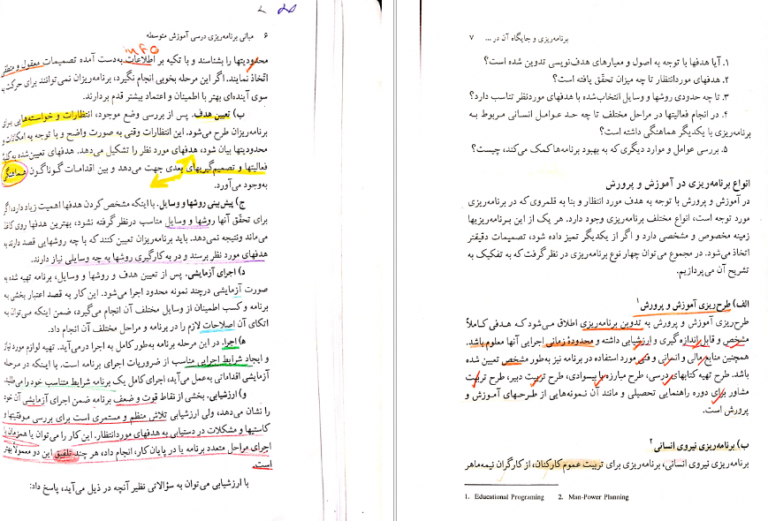 ۶ مبانی برنامه‌ریزی درسی آموزش متوسطه
info
محدودیتها را بشناسند و با تکیه بر اطلاعات به‌دست آمده تصمیمات معقول و منطقی
اتخاذ نمایند. اگر این مرحله بخوبی انجام نگیرد، برنامه‌ریزان نمی‌توانند برای حرکت به
سوی آینده‌ای بهتر با اطمینان و اعتماد بیشتر قدم بردارند.
ب) تعیین هدف. پس از بررسی وضع موجود، انتظارات و خواسته‌هایی برای
برنامه‌ریزان طرح می‌شود. این انتظارات وقتی به صورت واضح و با توجه به امکانات و
محدودیتها بیان شود، هدفهای مورد نظر را تشکیل می‌دهد. هدفهای تعیین شده به کلیه
فعالیتها و تصمیم‌گیریهای بعدی جهت می‌دهد و بین اقدامات گوناگون هماهنگی
به‌وجود می‌آورد.
ج) پیش‌بینی روشها و وسایل. با اینکه مشخص کردن هدفها اهمیت زیاد دارد، اگر
برای تحقق آنها روشها و وسایل مناسب درنظر گرفته نشود، بهترین هدفها روی کاغذ
می‌ماند و نتیجه نمی‌دهد. باید برنامه‌ریزان تعیین کنند که با چه روشهایی قصد دارند به
هدفهای مورد نظر برسند و در به کارگیری روشها به چه وسایلی نیاز دارند.
د) اجرای آزمایشی. پس از تعیین هدف و روشها و وسایل، برنامه تهیه شده به
صورت آزمایشی در چند نمونه محدود اجرا می‌شود. این کار به قصد اعتبار بخشی به
برنامه و کسب اطمینان از وسایل مختلف آن انجام می‌گیرد، ضمن اینکه می‌توان به
اتکای آن اصلاحات لازم را در برنامه و مراحل مختلف آن انجام داد.
ه) اجرا. در این مرحله برنامه به‌طور کامل به اجرا درمی‌آید. تهیه لوازم مورد نیاز
و ایجاد شرایط اجرایی مناسب از ضروریات اجرای برنامه است. با اینکه در مرحله
آزمایشی اقداماتی به‌عمل می‌آید، اجرای کامل یک برنامه شرایط متناسب خود را می‌طلبد.
و) ارزشیابی. بخشی از نقاط قوت و ضعف برنامه ضمن اجرای آزمایشی آن خود
را نشان می‌دهد، ولی ارزشیابی تلاش منظم و مستمری است برای بررسی موفقیتها و
کاستیها و مشکلات در دستیابی به هدفهای موردانتظار. این کار را می‌توان یا همزمان با
اجرای مراحل متعدد برنامه یا در پایان کار، انجام داد، هر چند تلفیق این دو معمولاً بهتر
است.
با ارزشیابی می‌توان به سؤالاتی نظیر آنچه در ذیل می‌آید، پاسخ داد:
برنامه‌ریزی و جایگاه آن در ... ۷
۱. آیا هدفها با توجه به اصول و معیارهای هدف‌نویسی تدوین شده است؟
۲. هدفهای موردانتظار تا چه میزان تحقق یافته است؟
۳. تا چه حدودی روشها و وسایل انتخاب‌شده با هدفهای موردنظر تناسب دارد؟
۴. در انجام فعالیتها در مراحل مختلف تا چه حد عوامل انسانی مربوط به
برنامه‌ریزی با یکدیگر هماهنگی داشته است؟
۵. بررسی عوامل و موارد دیگری که به بهبود برنامه‌ها کمک می‌کند، چیست؟
انواع برنامه‌ریزی در آموزش و پرورش
در آموزش و پرورش با توجه به هدف مورد انتظار و بنا به قلمروی که در برنامه‌ریزی
مورد توجه است، انواع مختلف برنامه‌ریزی وجود دارد. هر یک از این برنامه‌ریزیها
زمینه مخصوص و مشخصی دارد و اگر از یکدیگر تمیز داده شود، تصمیمات دقیقتر
اتخاذ می‌شود. در مجموع می‌توان چهار نوع برنامه‌ریزی در نظر گرفت که به تفکیک به
تشریح آن می‌پردازیم.
الف) طرح‌ریزی آموزش و پرورش۱
طرح‌ریزی آموزش و پرورش به تدوین برنامه‌ریزی اطلاق می‌شود که هدفی کاملاً
مشخص و قابل اندازه‌گیری و ارزشیابی داشته و محدودهٔ زمانی اجرایی آنها معلوم باشد.
همچنین منابع مالی و انسانی و فنی مورد استفاده در برنامه نیز به‌طور مشخص تعیین شده
باشد. طرح تهیه کتابهای درسی، طرح مبارزه با بیسوادی، طرح تربیت دبیر، طرح تربیت
مشاور برای دوره راهنمایی تحصیلی و مانند آن نمونه‌هایی از طرحهای آموزش و
پرورش است.
ب) برنامه‌ریزی نیروی انسانی۲
برنامه‌ریزی نیروی انسانی، برنامه‌ریزی برای تربیت عموم کارکنان، از کارگران نیمه‌ماهر
1. Educational Programing 2. Man-Power Planning